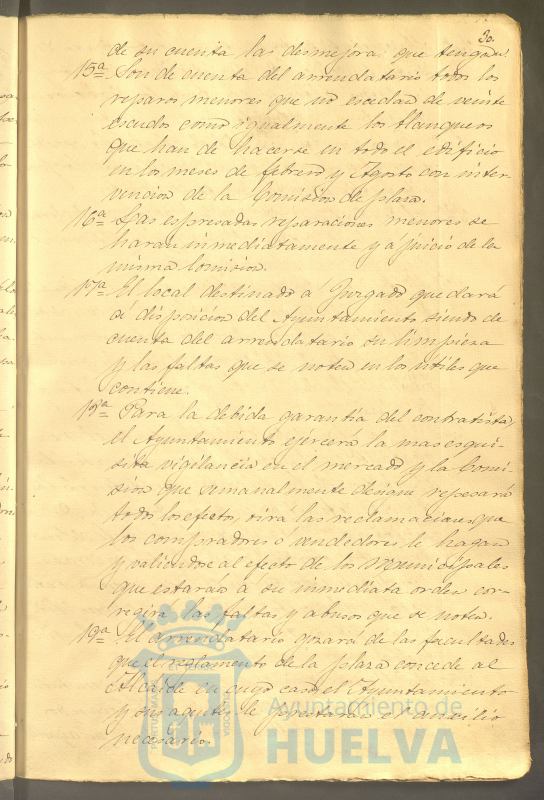 30.
de su cuenta las desmejora que tengan.
15ª Son de cuenta del arrendatario todos los
reparos menores que no escedan de veinte
escudos como igualmente los blanqueos
que han de hacerse en todo el edificio
en los meses de febrero y Agosto con inter-
vencion de la Comision de plaza.
16ª Las espresadas reparaciones menores se
haran inmediatamente y a juicio de la
misma Comision.
17ª El local destinado a Juzgado quedará
a disposicion del Ayuntamiento siendo de
cuenta del arrendatario su limpieza
y las faltas que se noten en los utiles que
contiene.
18ª Para la debida garantía del contratista,
el Ayuntamiento ejercerá la mas esqui-
sita vigilancia en el mercado y la Comi-
sion que semanalmente designe repesará
todos los efectos, oirá las reclamaciones que
los compradores o vendedores le hagan
y valiendose al efecto de los Municipales
que estaran a su inmediata orden cor-
regira las faltas y abusos que se noten.
19ª El arrendatario gozará de las facultades
que el reglamento de la plaza concede al
Alcaide en cuyo caso el Ayuntamiento
y sus agentes le prestarán el auxilio
necesario.
Ayuntamiento de
HUELVA